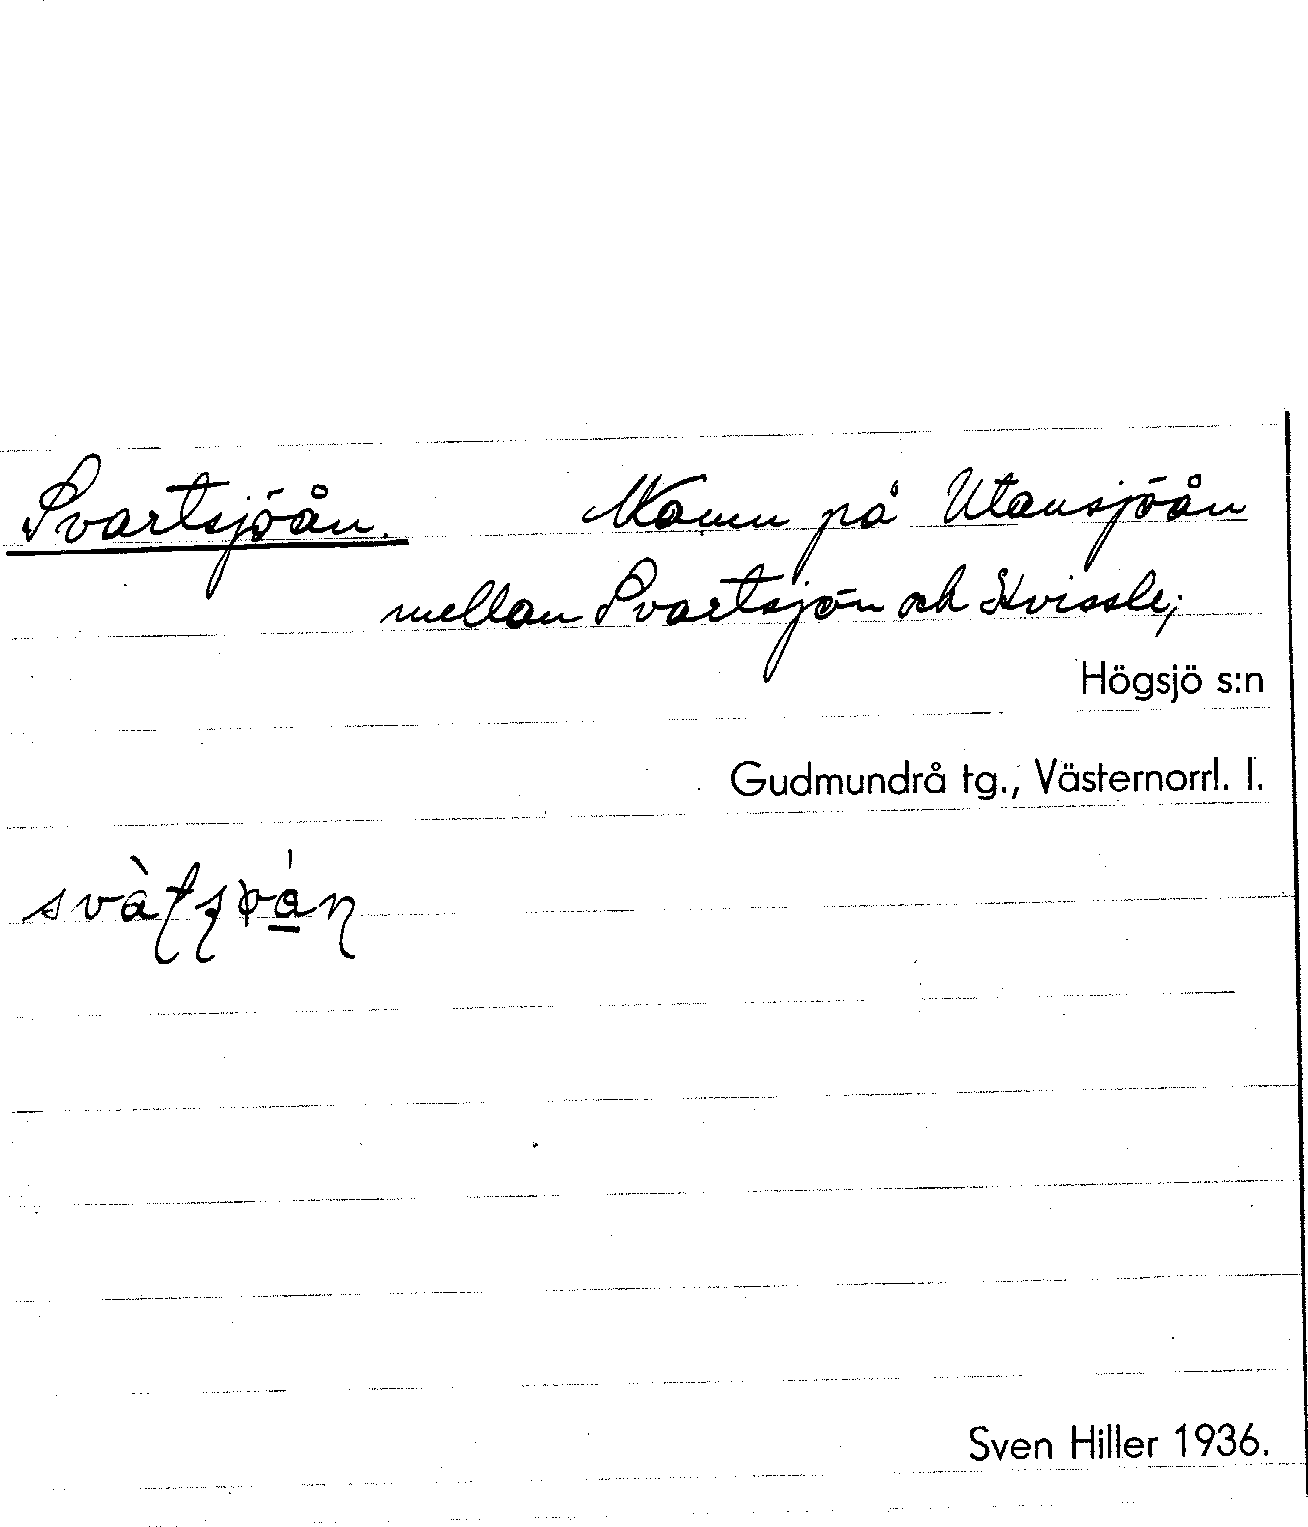 Svartsjöån. Namn på Utansjöån
mellan Svartsjön och Kvissle;
Högsjö s:n
Gudmundrå tg., Västernorrl. l.
Sven Hiller 1936.